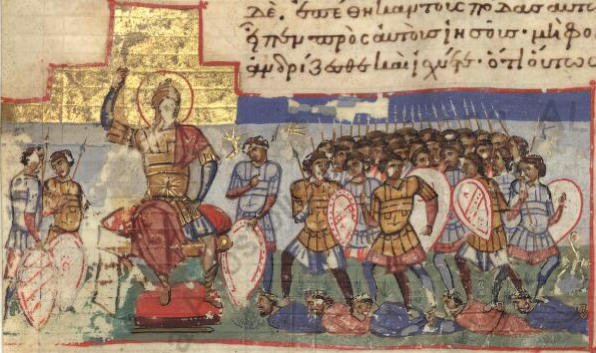 δὲ. ἐπέθηκαν τοὺς πόδας αὐτῶ
εἶπεν πρὸς αὐτοὺς ἰησοῦς· μὴ φο
ἀνδρίζεσθε καὶ ἰσχύετε· ὅτι οὕτως